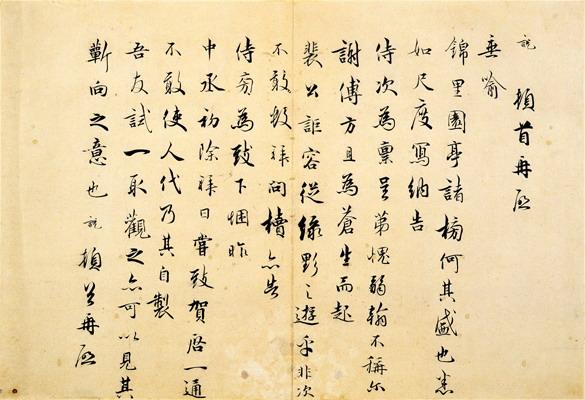 說 頓首再啓
垂喻
錦里園亭諸榜何其盛也悉
如尺度寫納告
侍次為稟呈第愧弱翰不稱尔
謝傅方且為蒼生而起
裴公詎容從綠野之遊乎非次
不敢數拜問牘亦告
侍旁為致下悃昨
中丞初除拜日嘗致賀啓一通
不敢使人代乃其自製
吾友試一取觀之亦可以見其
蘄向之意也 說 頓首再啓